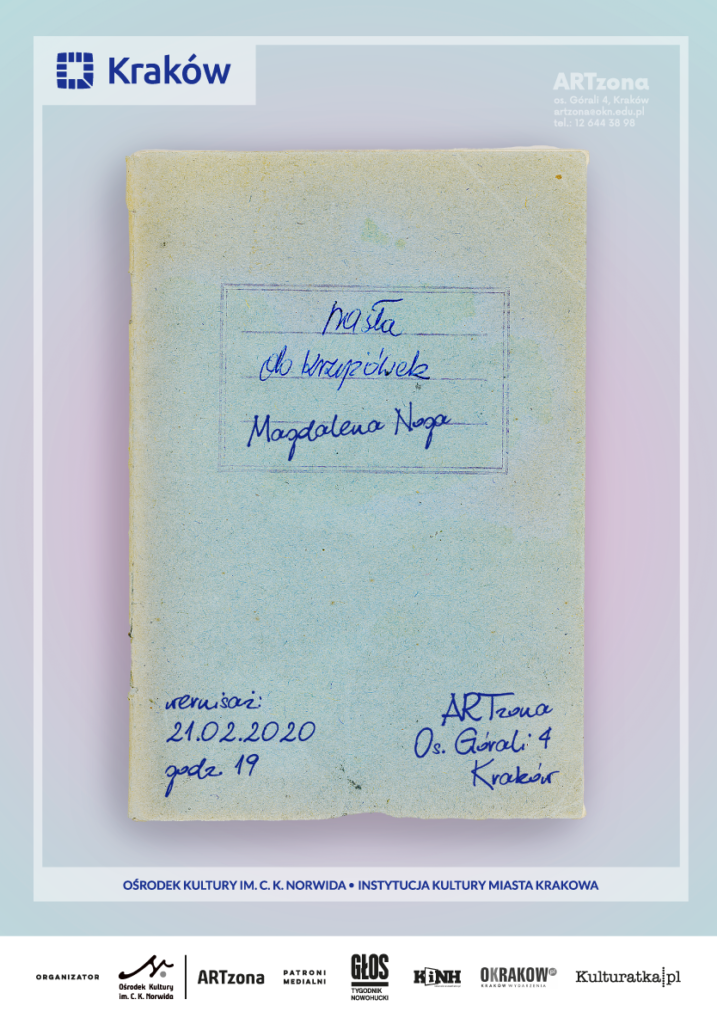 Kraków
ARTzona
os. Górali 4, Kraków
artzona@okn.edu.pl
tel.: 12 644 38 98
hasła
do krzyżówek
Magdalena Noga
wernisaż:
21.02.2020
godz. 19
ARTzona
Os. Górali 4
Kraków
OŚRODEK KULTURY IM. C. K. NORWIDA • INSTYTUCJA KULTURY MIASTA KRAKOWA
ORGANIZATOR
Ośrodek Kultury
im. C. K. Norwida
ARTzona
PATRONI
MEDIALNI
GŁOS
TYGODNIK
NOWOHUCKI
KiNH
OKRAKOW
KRAKÓW WYDARZENIA
Kulturatka.pl